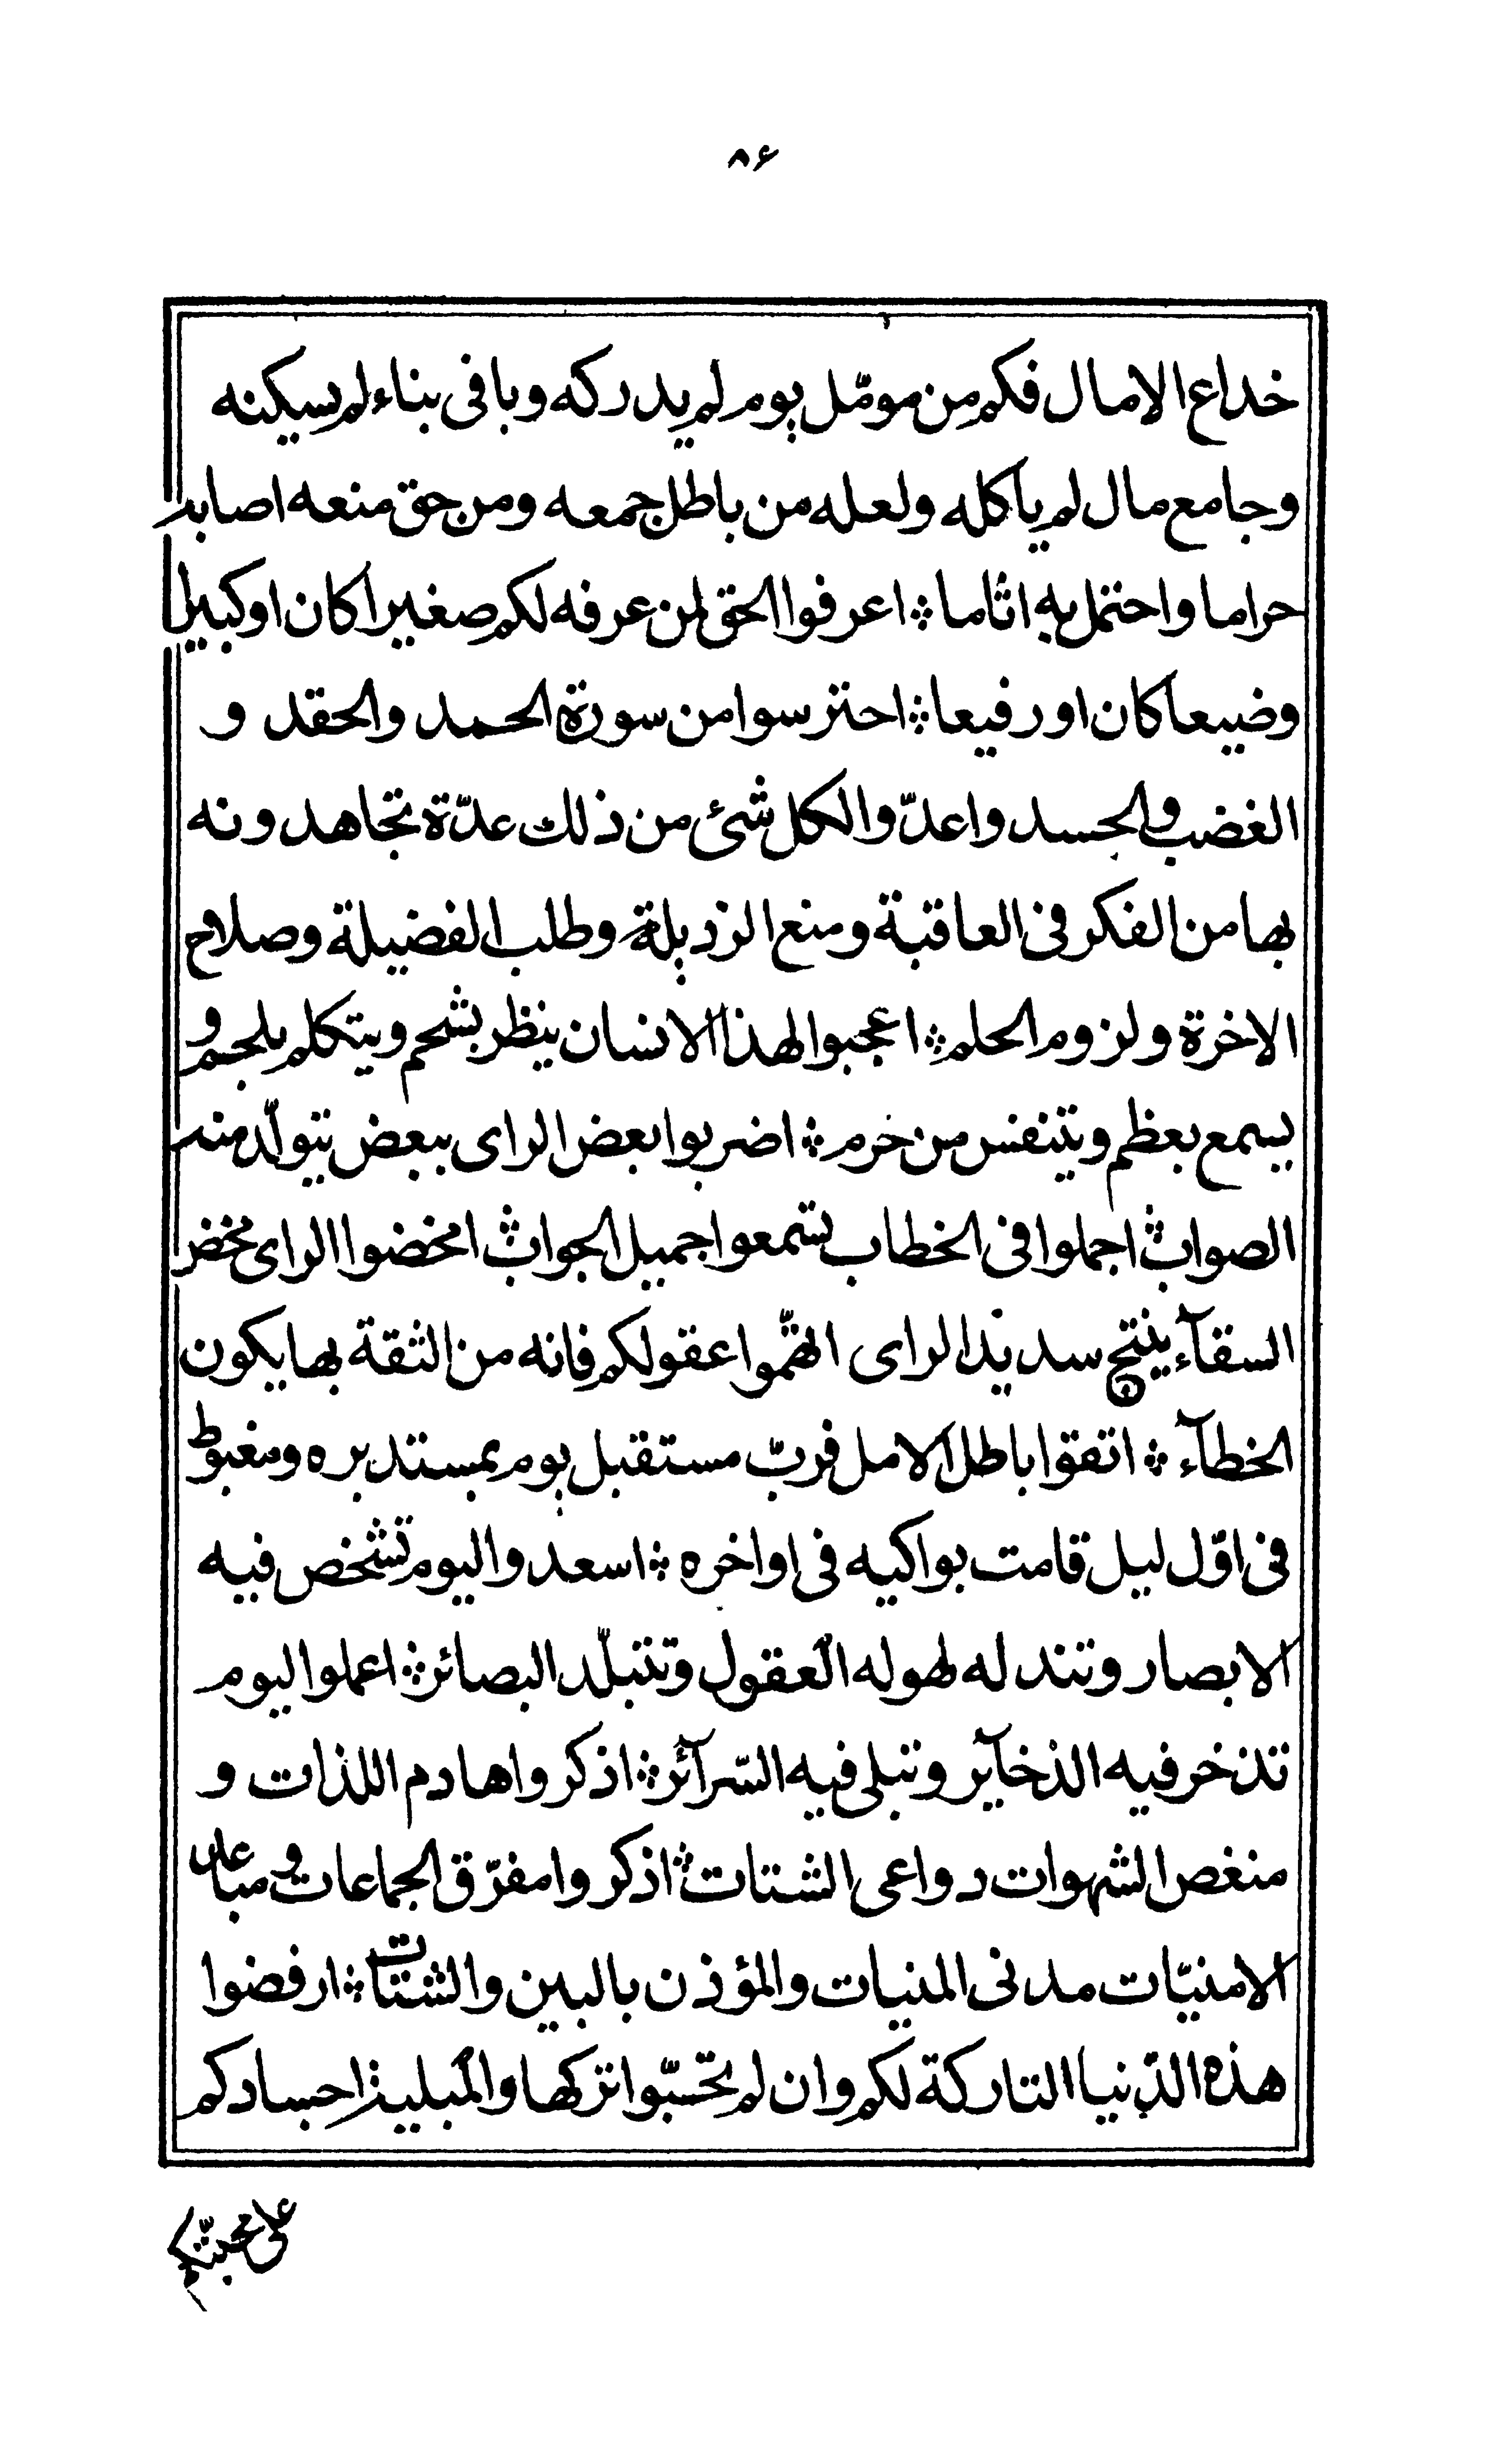 ۸۶
خداع الامال فكم من مومّل يوم لم يدركه وبافى بناء لم يسكنه
وجامع مال لم ياكله ولعله من باطل جمعه ومن حق منعه اصابه
حراما واحتمل به اثاما ؞ اعرفوا الحق لمن عرفه لكم صغيرا كان اوكبيرا
وضيعا كان او رفيعا ؞ احترسوا من سورة الحمد والحقد و
الغضب والحسد واعدّوا لكل شئ من ذلك عدّة تجاهدونه
بها من الفكر فى العاقبة ومنع الرذيلة وطلب الفضيلة وصلاح
الاخرة ولزوم الحلم ؞ اعجبوا لهذا الانسان ينظر بشحم ويتكلم بلحم و
يسمع بعظم ويتنفس من خرم ؞ اضربوا بعض الراى ببعض يتولّد منه
الصواب ؞ اجملوا فى الخطاب تسمعوا جميل الجواب ؞ امخضوا الراى مخض
السقآء ينتج سديد الراى اتهمّوا عقولكم فانه من الثقة بها يكون
الخطآء ؞ اتقوا باطل الامل فربّ مستقبل يوم بمستدبره ومغبوط
فى اوّل ليل قامت بواكيه فى اواخره ؞ اسعدوا ليوم تشخص فيه
الابصار وتندله لهوله العقول وتتبلّد البصائر ؞ اعملوا ليوم
تذخر فيه الذخآير وتبلى فيه السّرآئر ؞ اذكروا هادم اللذات و
منغص الشهوات دواعى الشتات ؞ اذكروا مفرّق الجماعات ومباعد
الامنيّات مدنى المنيات والمؤذن بالبين والشتات ؞ ارفضوا
هذه الدّنيا التاركة لكم وان لم تحّسبّوا تركها والمبلية اجسادكم
على محبتّكم